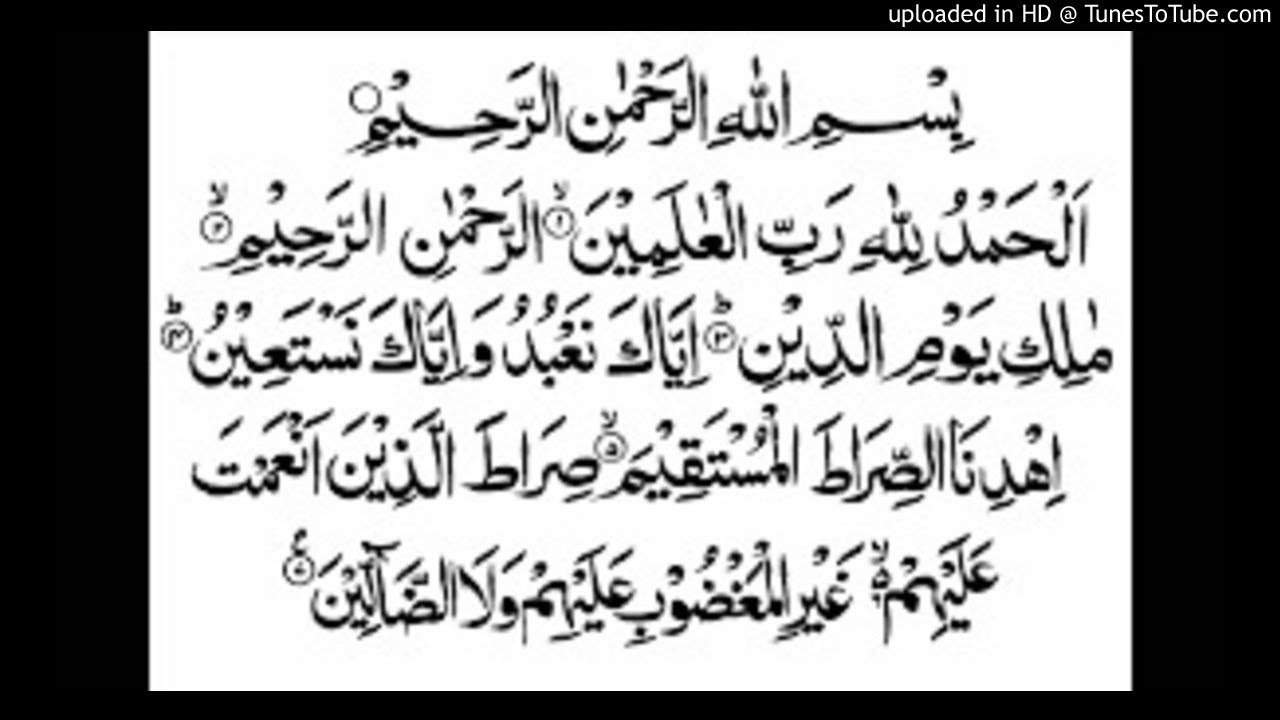 uploaded in HD @ TunesToTube.com
بِسْمِ اللهِ الرَّحْمٰنِ الرَّحِيْمِ ○
اَلْحَمْدُ لِلّٰهِ رَبِّ الْعٰلَمِيْنَ ۙ﴿۱﴾ الرَّحْمٰنِ الرَّحِيْمِ ۙ﴿۲﴾
مٰلِكِ يَوْمِ الدِّيْنِ ؕ﴿۳﴾ اِيَّاكَ نَعْبُدُ وَ اِيَّاكَ نَسْتَعِيْنُ ؕ﴿۴﴾
اِهْدِنَا الصِّرَاطَ الْمُسْتَقِيْمَ ۙ﴿۵﴾ صِرَاطَ الَّذِيْنَ اَنْعَمْتَ
عَلَيْهِمْ ۙ۬ غَيْرِ الْمَغْضُوْبِ عَلَيْهِمْ وَلَا الضَّآلِّيْنَ